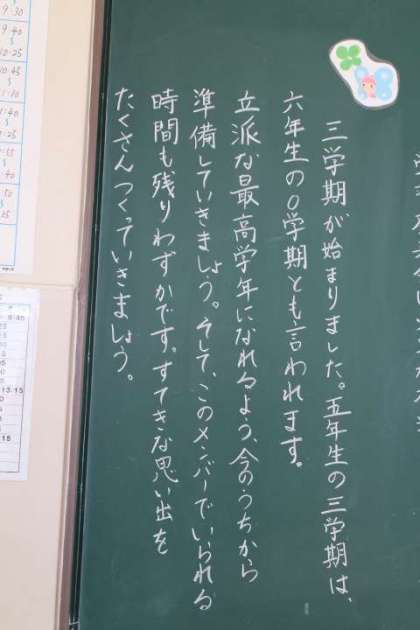 三学期が始まりました。五年生の三学期は、
六年生の0学期とも言われます。
立派な最高学年になれるよう、今のうちから
準備していきましょう。そして、このメンバーでいられる
時間も残りわずかです。すてきな思い出を
たくさんつくっていきましょう。
9:30
10:25
10:45